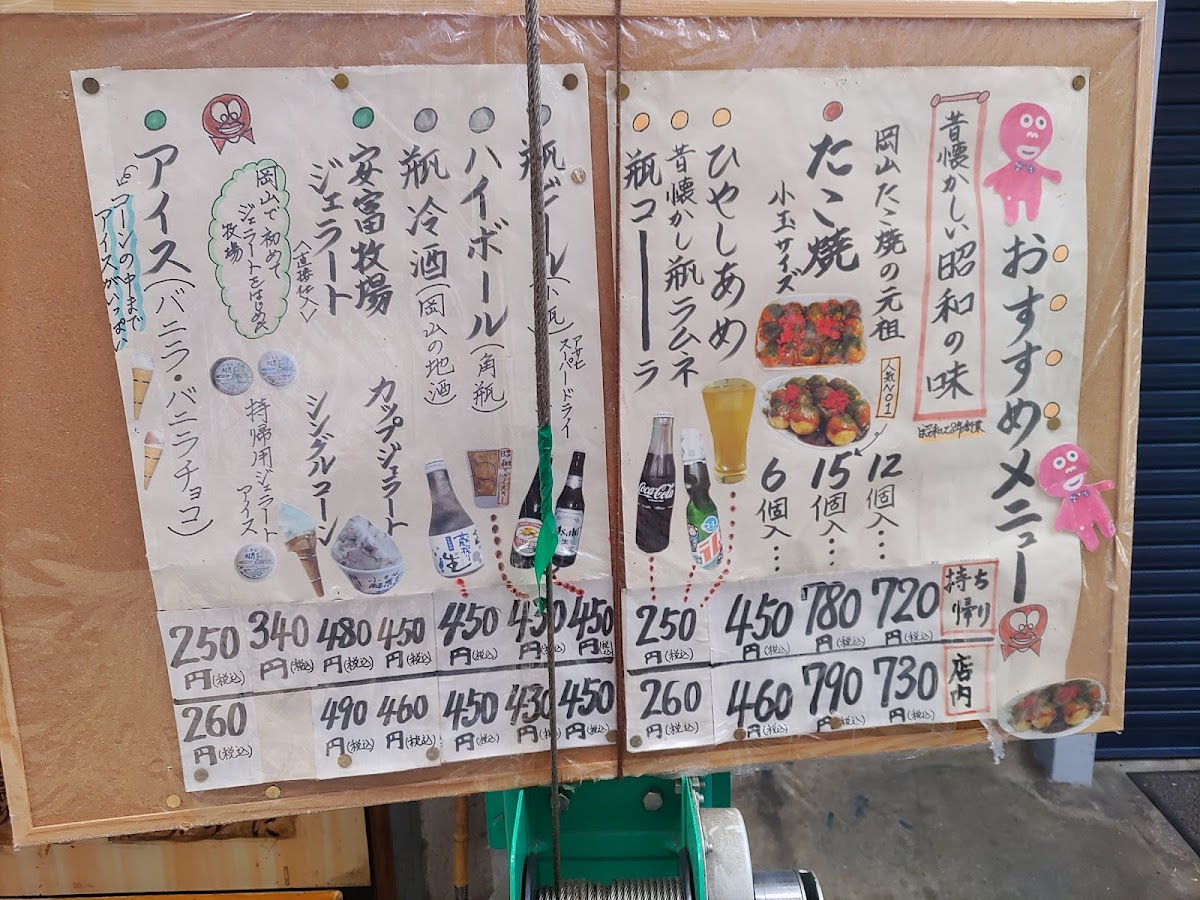 おすすめメニュー
昔懐かしい昭和の味
昭和28年創業
岡山たこ焼の元祖
たこ焼
小玉サイズ
人気NO1
12個入…
15個入…
6個入…
ひやしあめ
昔懐かし瓶ラムネ
瓶コーラ
Coca-Cola
持ち帰り
720円(税込)
780円(税込)
450円(税込)
250円(税込)
店内
730円(税込)
790円(税込)
460円(税込)
260円(税込)
瓶ビール(小瓶)
アサヒ
スーパードライ
ハイボール(角瓶)
瓶冷酒(岡山の地酒)
安富牧場
ジェラート
〈直接仕入〉
岡山で初めて
ジェラートをはじめた
牧場
カップジェラート
シングルコーン
持帰用ジェラート
アイス
アイス(バニラ・バニラチョコ)
コーンの中まで
アイスがいっぱい
Asahi
生
450円(税込)
430円(税込)
450円(税込)
450円(税込)
480円(税込)
340円(税込)
250円(税込)
450円(税込)
430円(税込)
450円(税込)
460円(税込)
490円(税込)
260円(税込)